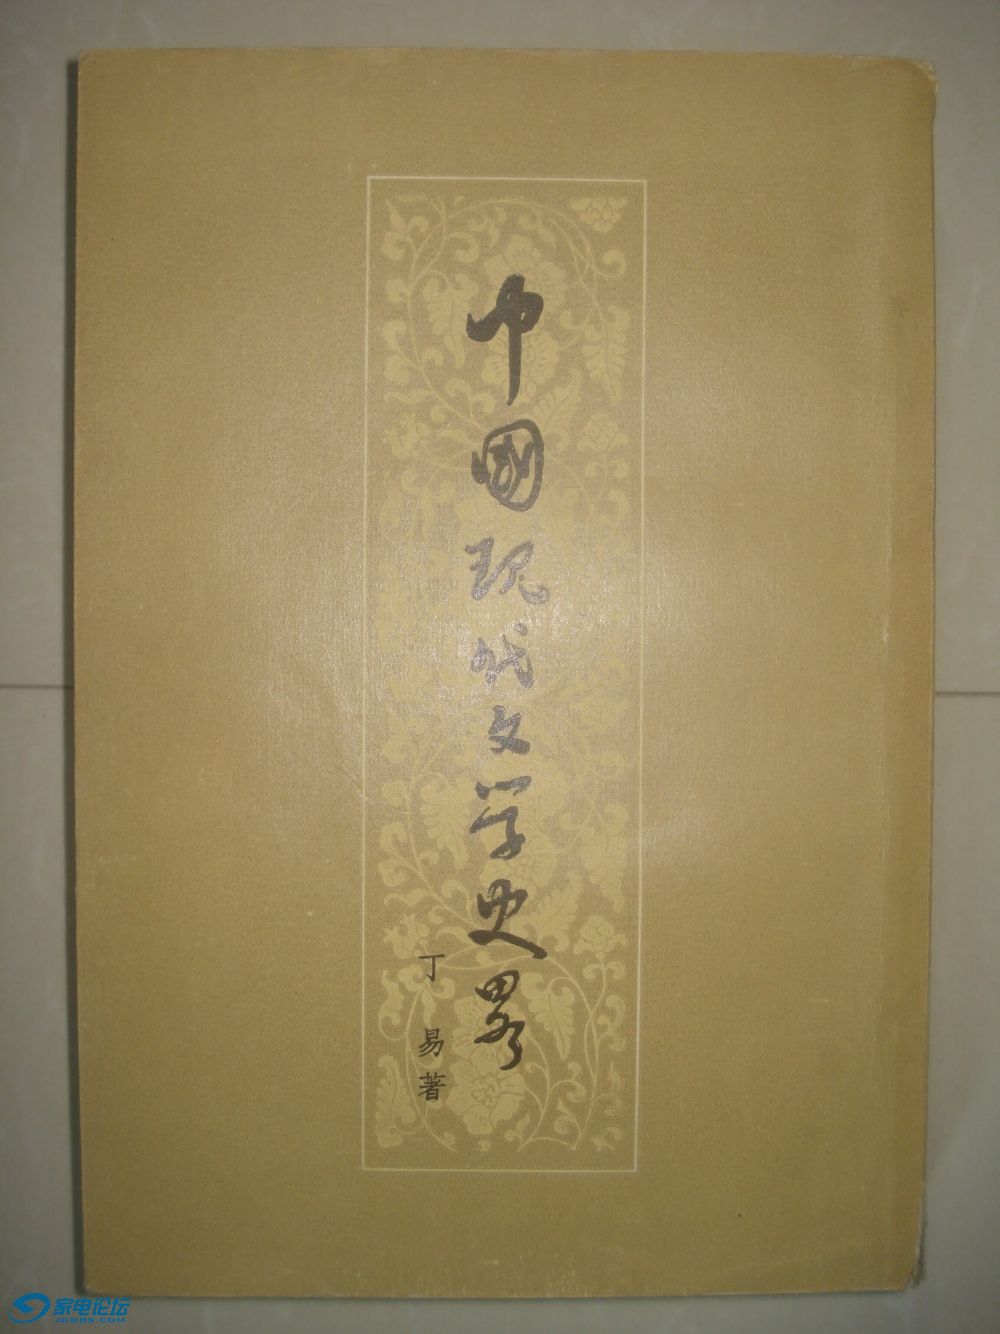 中國现代文学史畧
丁易著
家电论坛
JDBBS.COM